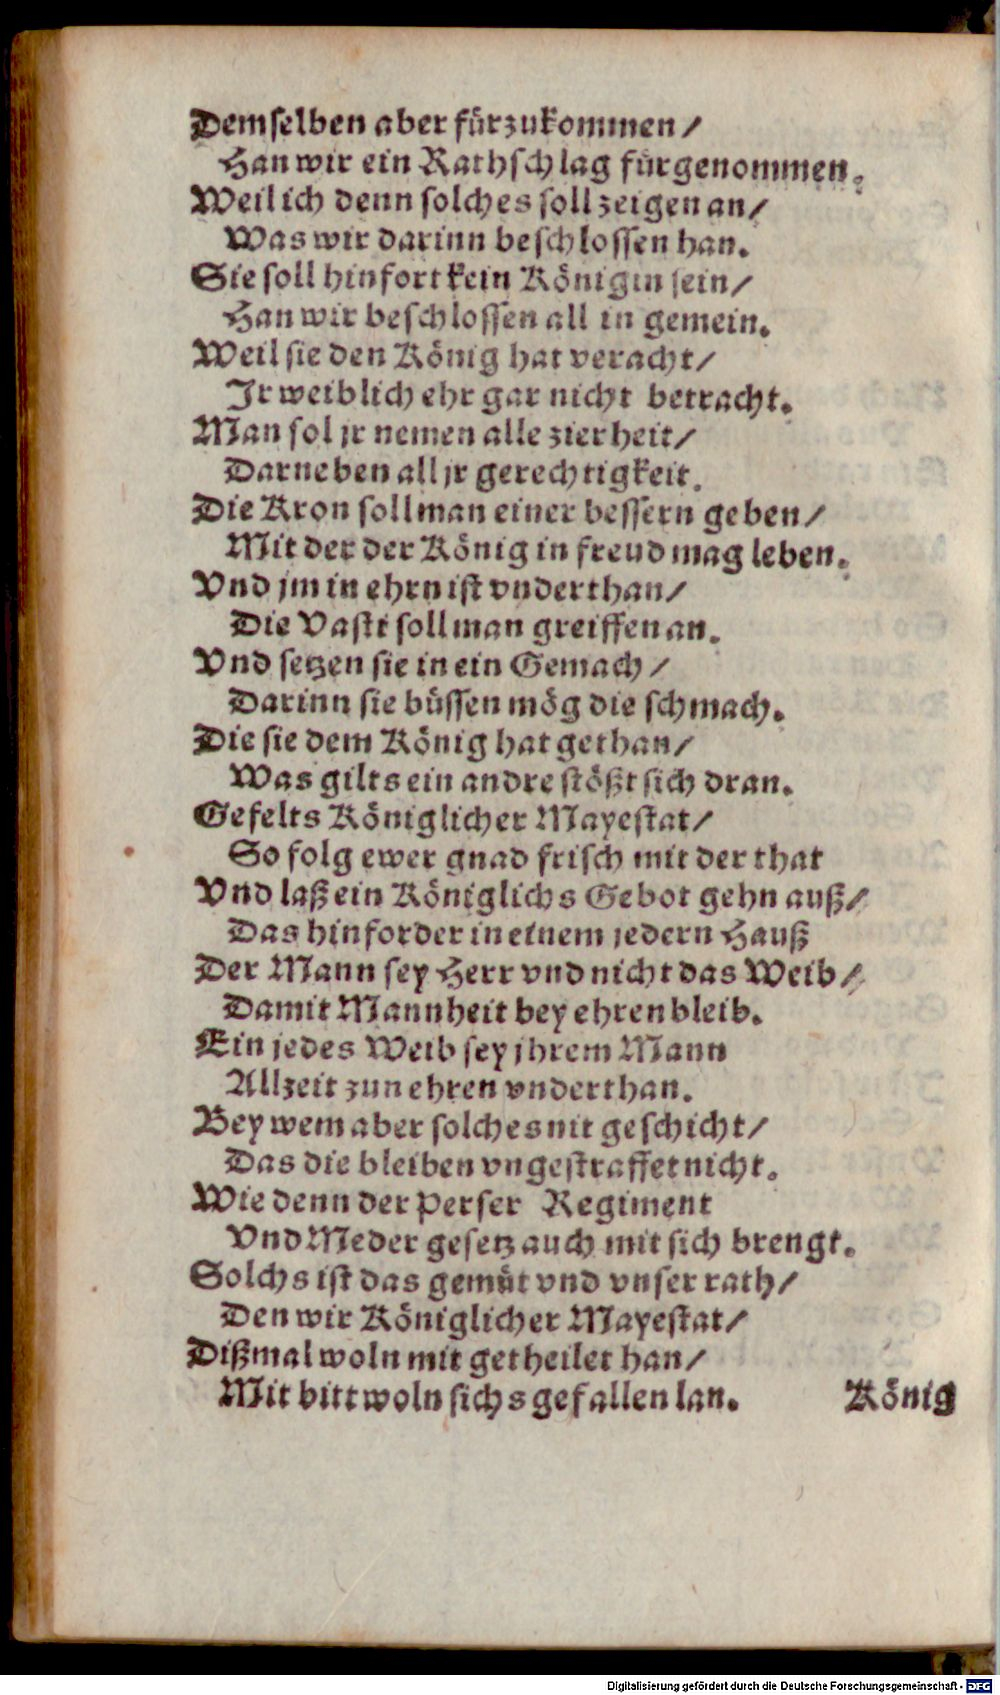 Demselben aber fürzukommen/
Han wir ein Rathschlag fürgenommen.
Weil ich denn solches soll zeigen an/
Was wir darinn beschlossen han.
Sie soll hinfort kein Königin sein/
Han wir beschlossen all in gemein.
Weil sie den König hat veracht/
Jr weiblich ehr gar nicht betracht.
Man sol jr nemen alle zierheit/
Darneben all jr gerechtigkeit.
Die Kron soll man einer bessern geben/
Mit der der König in freud mag leben.
Vnd jm in ehrn ist vnderthan/
Die Vasti soll man greiffen an.
Vnd setzen sie in ein Gemach/
Darinn sie büssen mög die schmach.
Die sie dem König hat gethan/
Was gilts ein andre stößt sich dran.
Gefelts Königlicher Mayestat/
So folg ewer gnad frisch mit der that
Vnd laß ein Königlichs Gebot gehn auß/
Das hinforder in einem jedern Hauß
Der Mann sey Herr vnd nicht das Weib/
Damit Mannheit bey ehren bleib.
Ein jedes Weib sey jhrem Mann
Allzeit zun ehren vnderthan.
Bey wem aber solches nit geschicht/
Das die bleiben vngestraffet nicht.
Wie denn der Perser Regiment
Vnd Meder gesetz auch mit sich brengt.
Solchs ist das gemüt vnd vnser rath/
Den wir Königlicher Mayestat/
Dißmal woln mit getheilet han/
Mit bitt woln sichs gefallen lan. König
Digitalisierung gefördert durch die Deutsche Forschungsgemeinschaft - DFG